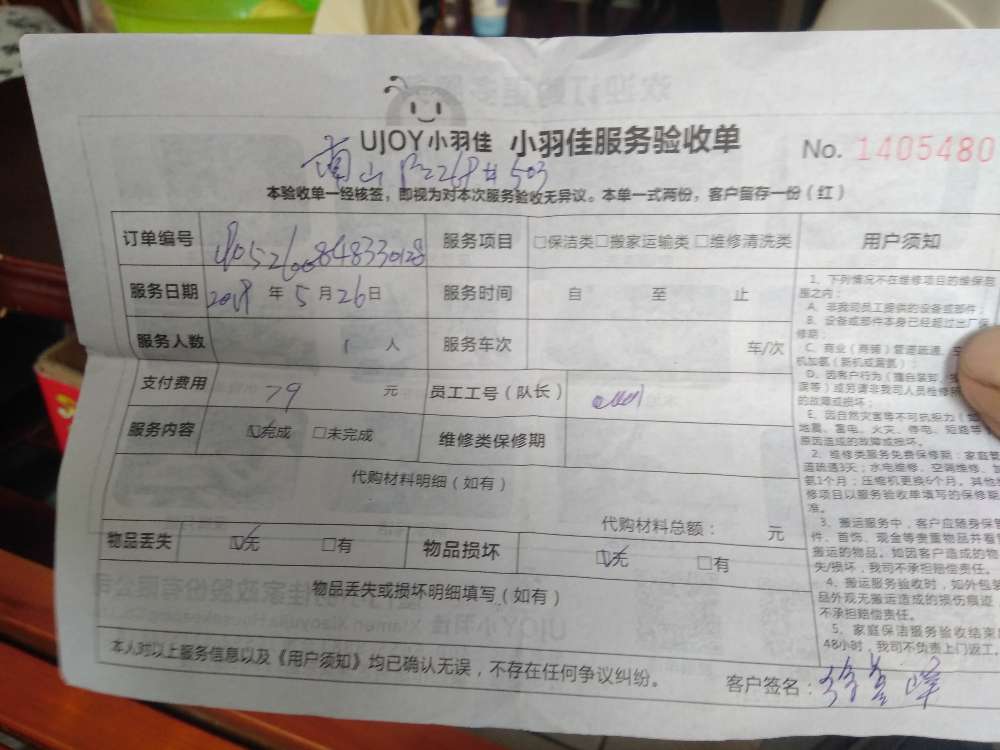 UJOY小羽佳 小羽佳服务验收单 No. 1405480
南山
本验收单一经核签，即视为对本次服务验收无异议。本单一式两份，客户留存一份（红）
订单编号 服务项目 □保洁类□搬家运输类□维修清洗类 用户须知
服务日期 2018 年 5 月 26 日 服务时间 自 至 止
服务人数 1 人 服务车次 车/次
支付费用 79 元 员工工号（队长）
服务内容 ☑完成 □未完成 维修类保修期
代购材料明细（如有）
代购材料总额： 元
物品丢失 ☑无 □有 物品损坏 ☑无 □有
物品丢失或损坏明细填写（如有）
本人对以上服务信息以及《用户须知》均已确认无误，不存在任何争议纠纷。
客户签名：
1、下列情况不在维修项目的维保包
围之内：
A、非我司员工提供的设备或部件；
B、设备或部件本身已经超过出厂保
修期；
C、商业（商铺）管道疏通、
机加氨（新机或漏氨）；
D、因客户行为（擅自装卸、
误等）或另请非我司人员检修
的故障或损坏；
E、因自然灾害等不可抗拒力（
地震、雷电、火灾、停电、短路等
原因造成的故障或损坏。
2、维修类服务免费保修期：家庭管
道疏通3天；水电维修、空调维修、加
氨1个月；压缩机更换6个月。其他维
修项目以服务验收单填写的保修期
准。
3、搬运服务中，客户应随身保管
件、首饰、现金等贵重物品并看管
搬运的物品。如因客户造成的物
失/损坏，我司不承担赔偿责任。
4、搬运服务验收时，如外包装
品外观无搬运造成的损伤痕迹
不承担赔偿责任。
5、家庭保洁服务验收结束
48小时，我司不负责上门返工。